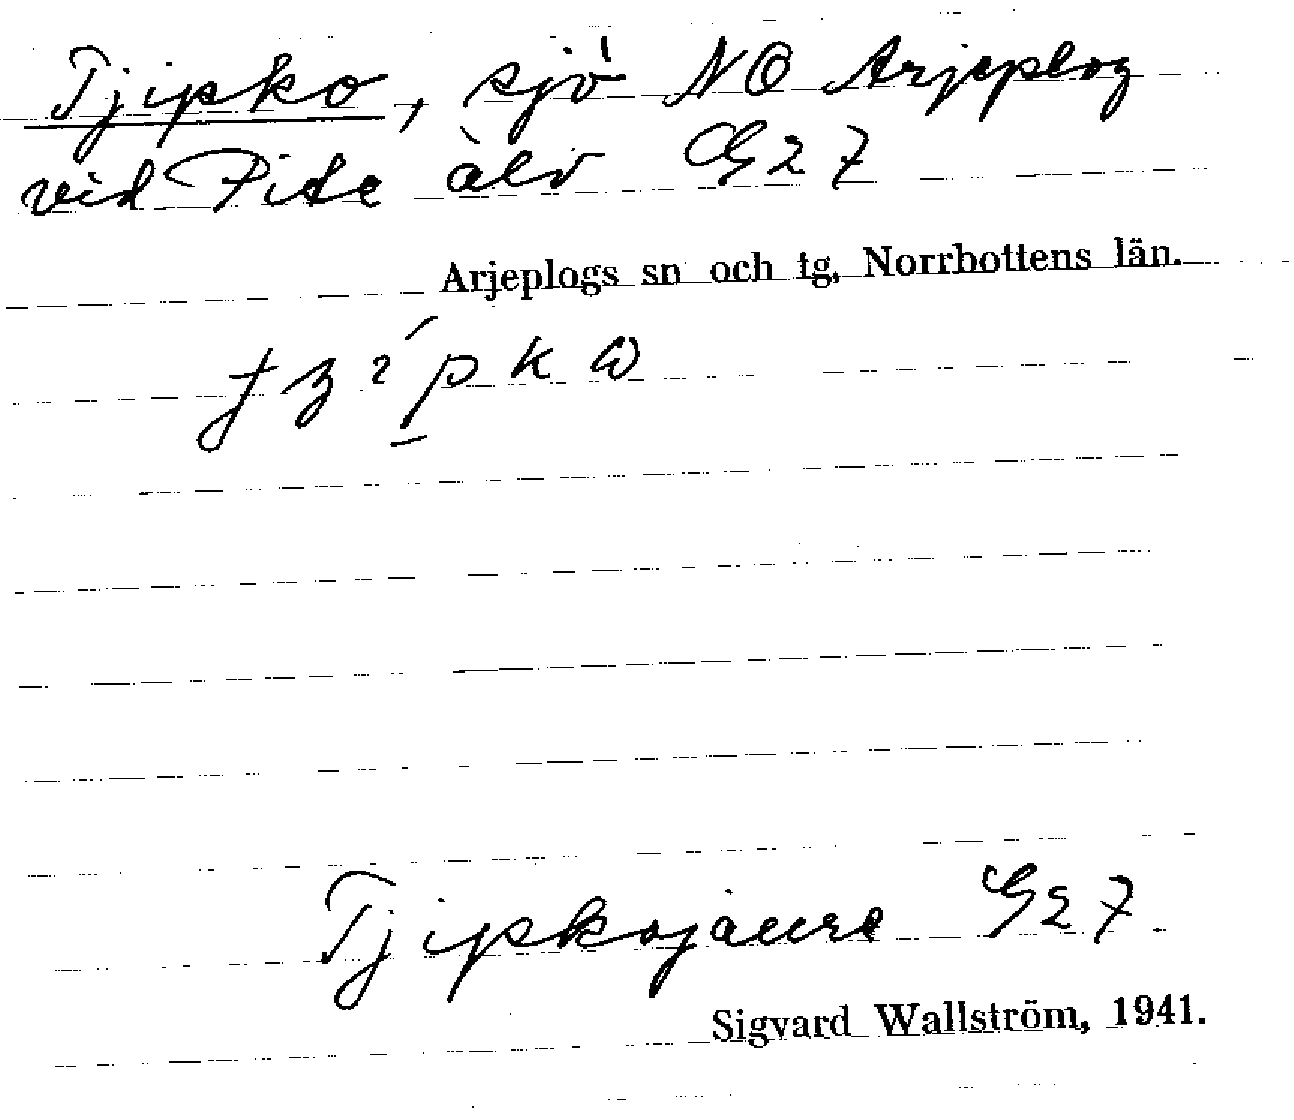 Tjipko, sjö NO Arjeplog
vid Pite älv G27
Arjeplogs sn och tg, Norrbottens län.
Tjipkojaure G27
Sigvard Wallström, 1941.